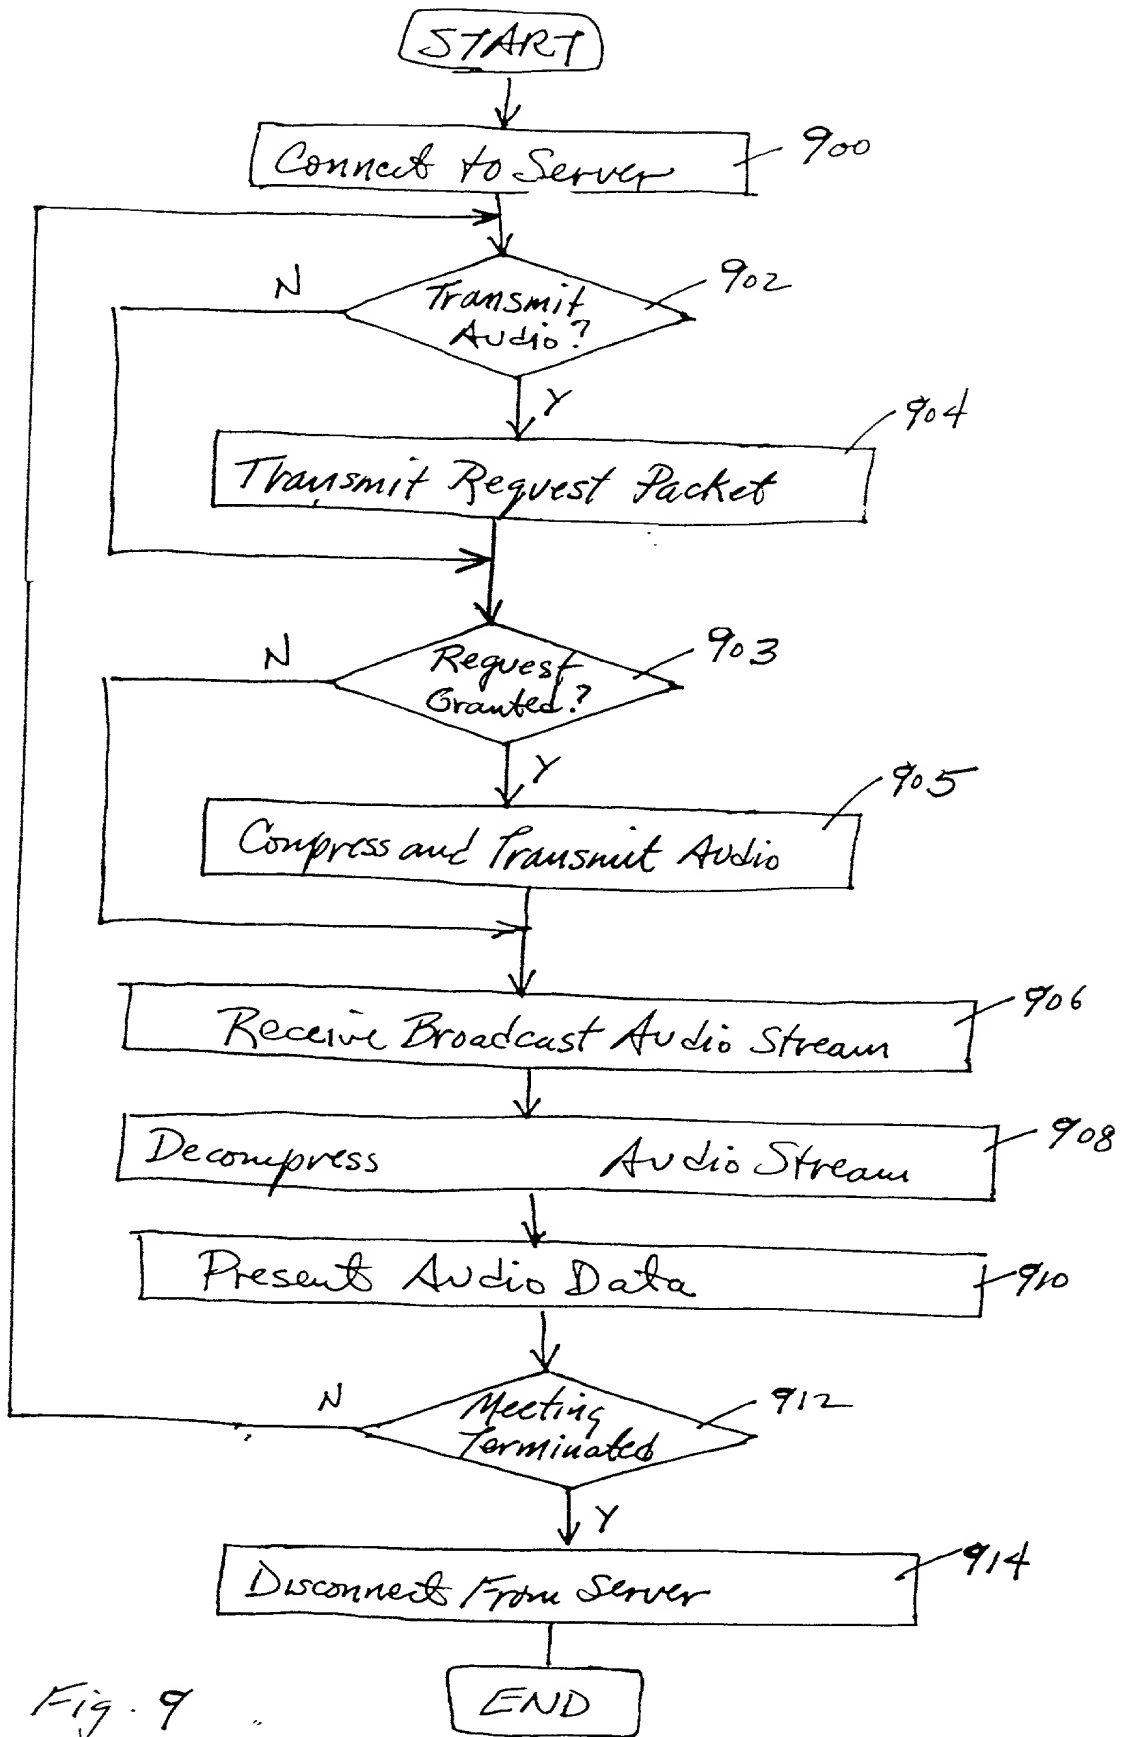 START
Connect to Server
900
N
Transmit
Audio?
902
Y
904
Transmit Request Packet
N
Request
Granted?
903
Y
905
Compress and Transmit Audio
906
Receive Broadcast Audio Stream
Decompress Audio Stream
908
Present Audio Data
910
N
Meeting
Terminated
912
Y
914
Disconnect From Server
END
Fig. 9